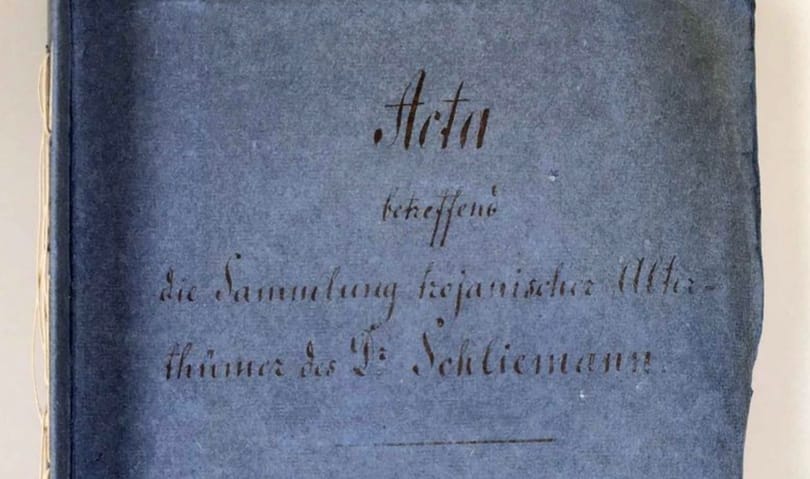 Acta
betreffend
die Sammlung trojanischer Alter-
thümer des Dr. Schliemann.